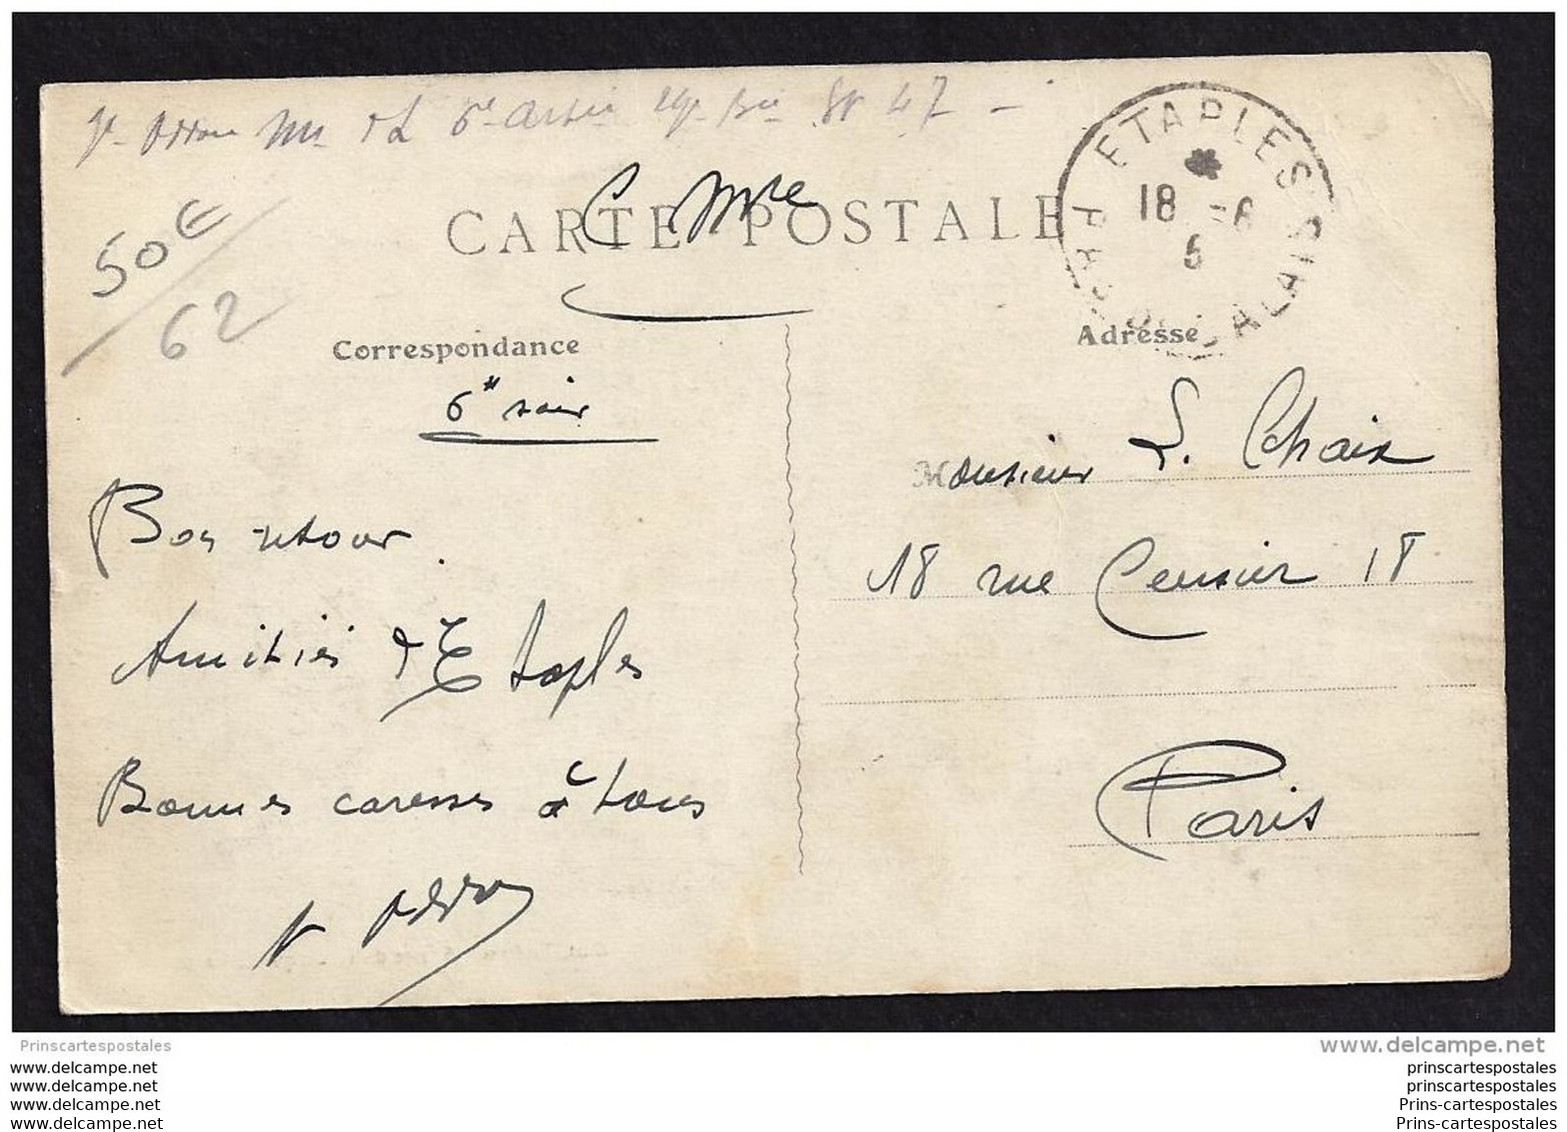 6e 47 -
C. Mre
CARTE POSTALE
ETAPLES
18 -6
PAS DE CALAIS
50€
62
Correspondance
Adresse
6h soir
Monsieur L. Chaix
18 rue Censier 18
Paris
Bon retour.
Amitiés d'Etaples
Bonnes caresses à tous
Prinscartespostales
www.delcampe.net
www.delcampe.net
www.delcampe.net
www.delcampe.net
www.delcampe.net
prinscartespostales
prinscartespostales
Prins-cartespostales
Prins-cartespostales